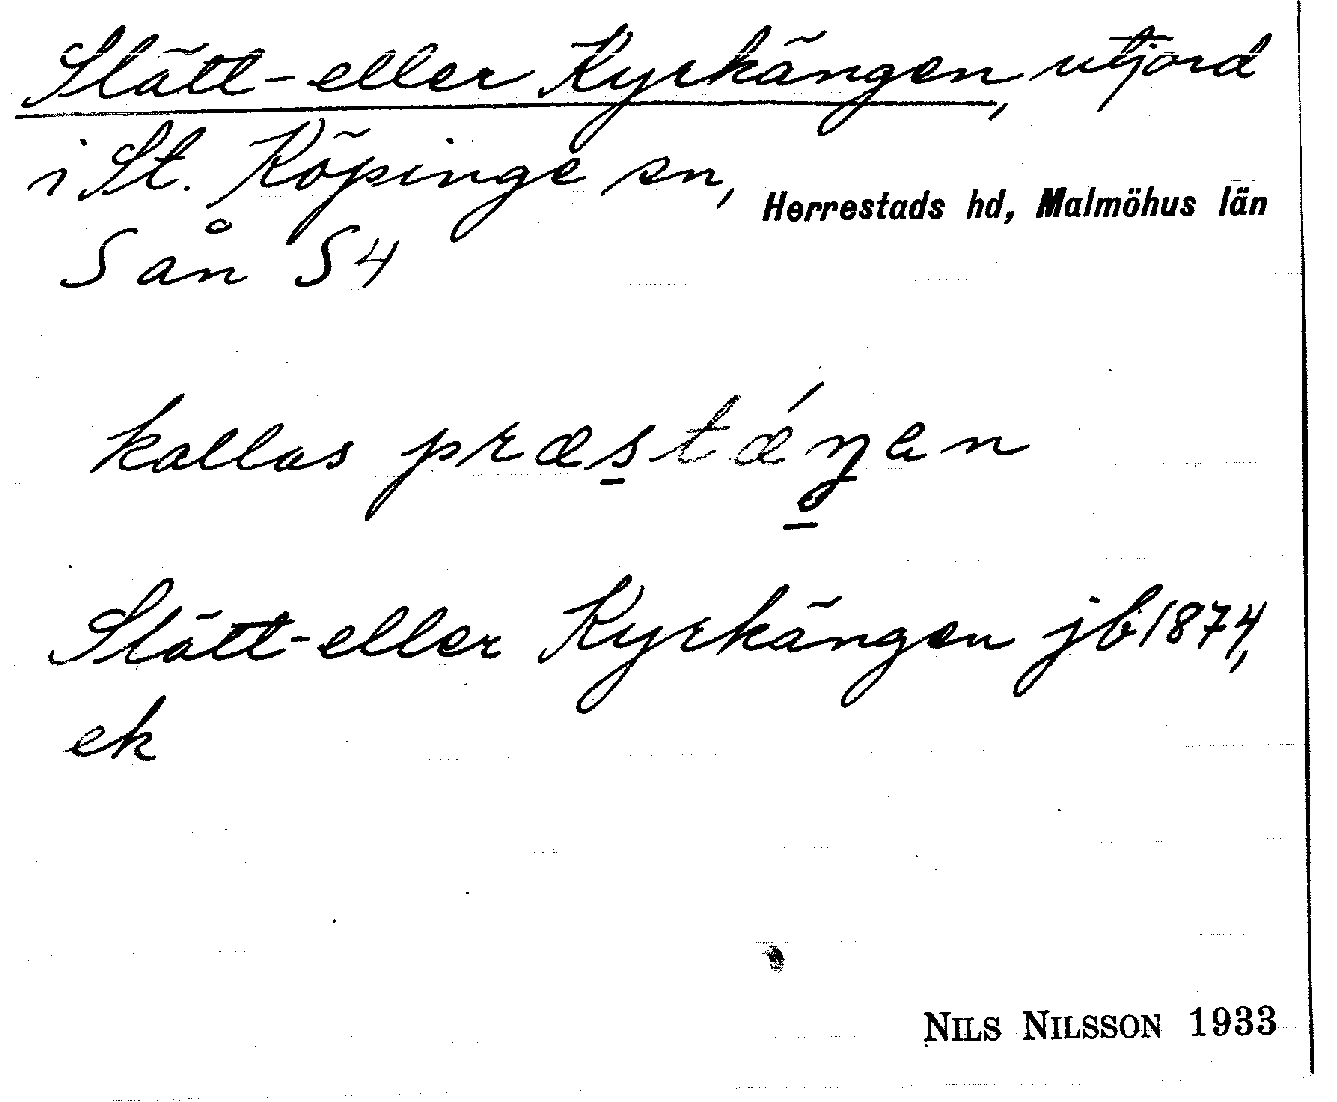 Slätt- eller Kyrkängen, utjord
i St. Köpinge sn, Herrestads hd, Malmöhus län
S ån S4
kallas præstǽŋen
Slätt- eller Kyrkängen jb 1874,
ek
NILS NILSSON 1933